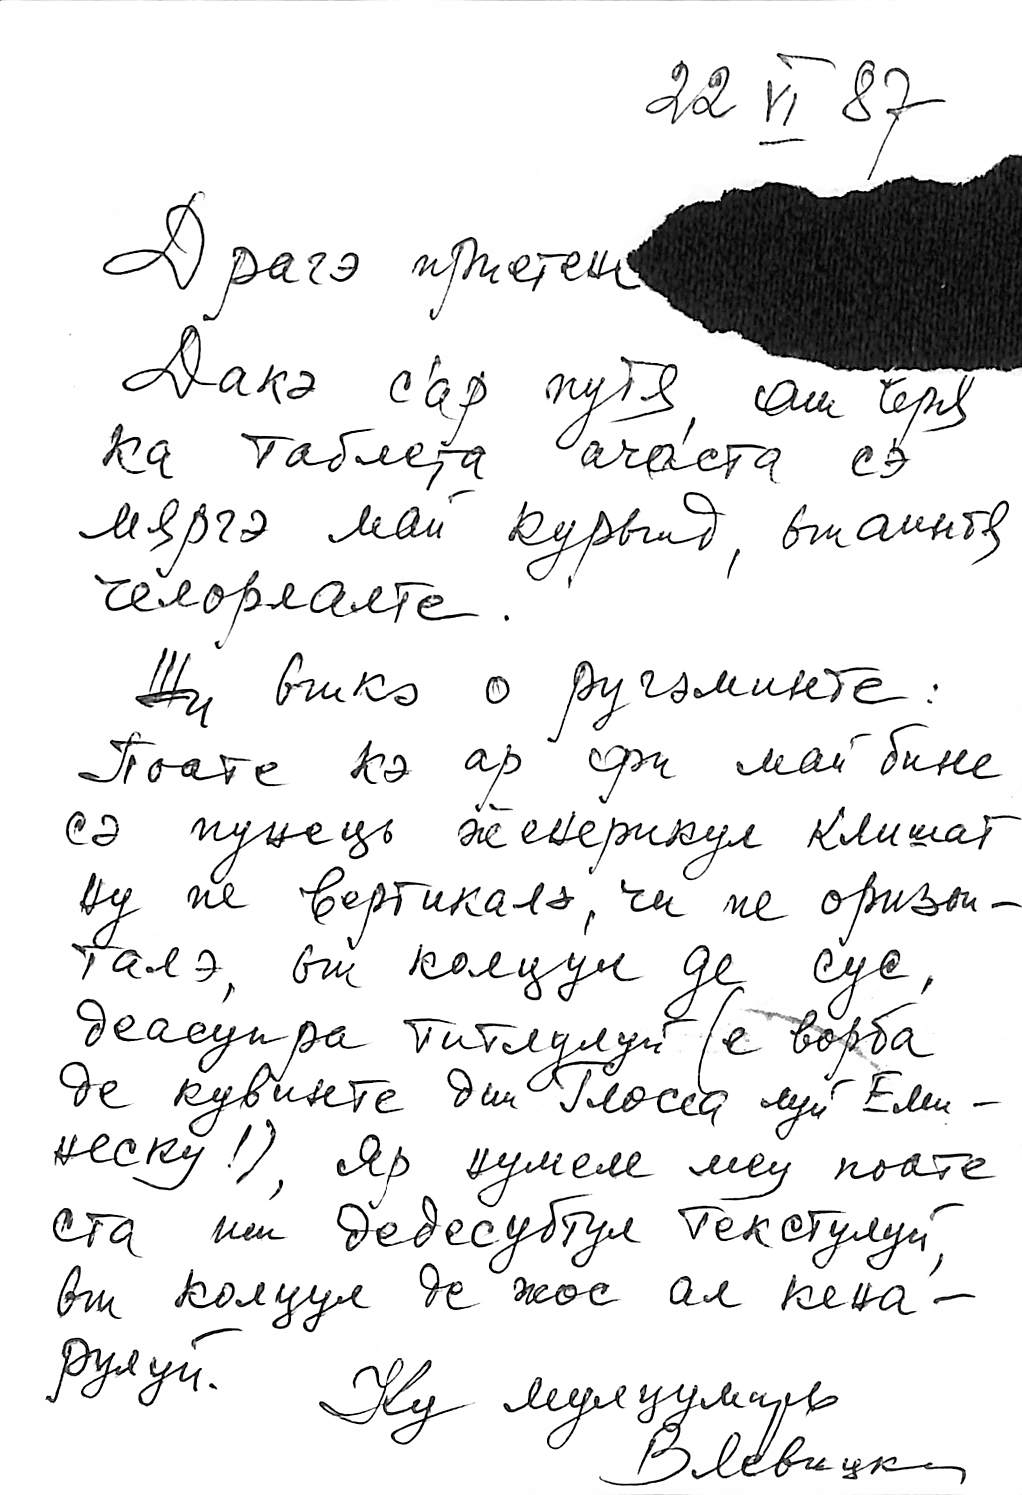 22 VI 87
Драгэ приетен
Дакэ с'ар путя, аш черя
ка таблета ачаста сэ
мяргэ май курынд, ынаинтя
челорлалте.
Ши ынкэ о ругэминте:
Поате кэ ар фи май бине
сэ пунець женерикул клишат
ну пе вертикалэ, чи пе оризон-
талэ, ын колцул де сус,
деасупра титлулуй (е ворба
де кувинте дин Глосса луй Еми-
неску!), Яр нумеле меу поате
ста ши дедесубтул текстулуй,
ын колцул де жос ал кена-
рулуй.
Ку мулцумирь
В Левицки